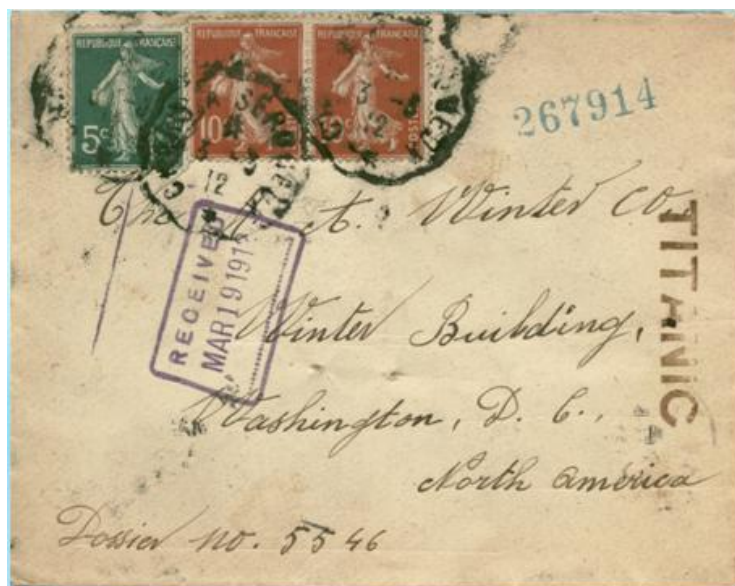 REPUBLIQUE FRANÇAISE REPUBLIQUE FRANÇAISE REPUBLIQUE FRANÇAISE
5c 10c POSTES
267914
A. Winter Co.
TITANIC
RECEIVED
MAR 19 191
Winter Building,
Washington, D. C.,
North America
Dossier no. 5546